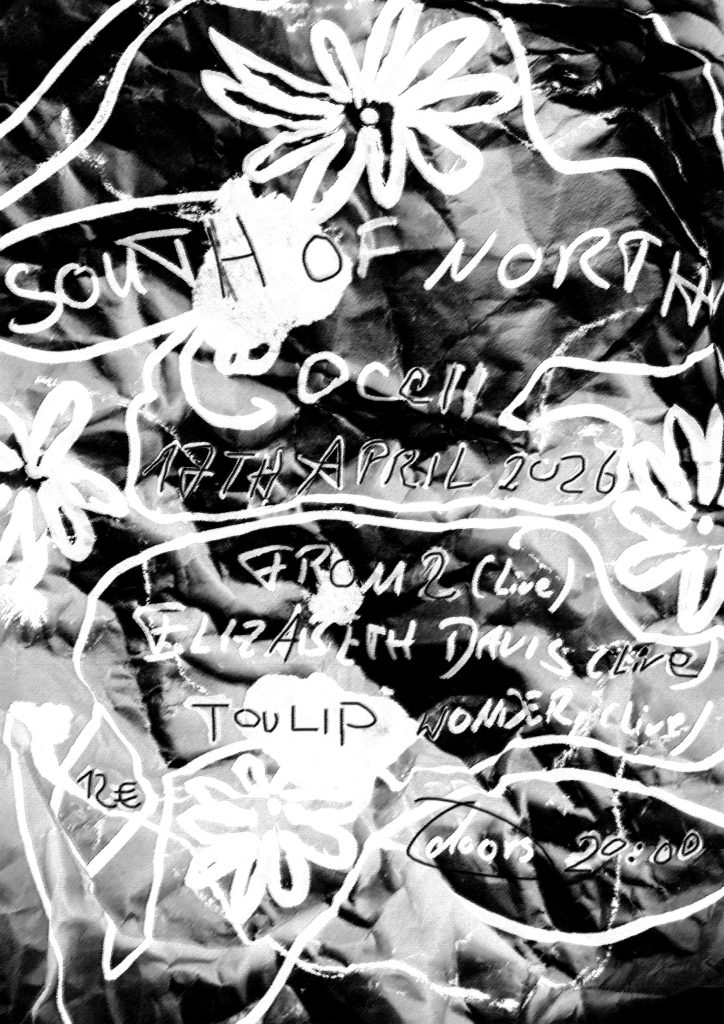 SOUTH OF NORTH
OCCII
17TH APRIL 2026
FROM 2 (Live)
ELIZABETH DAVIS (Live)
TOULIP WONDER (Live)
12€
doors 20:00